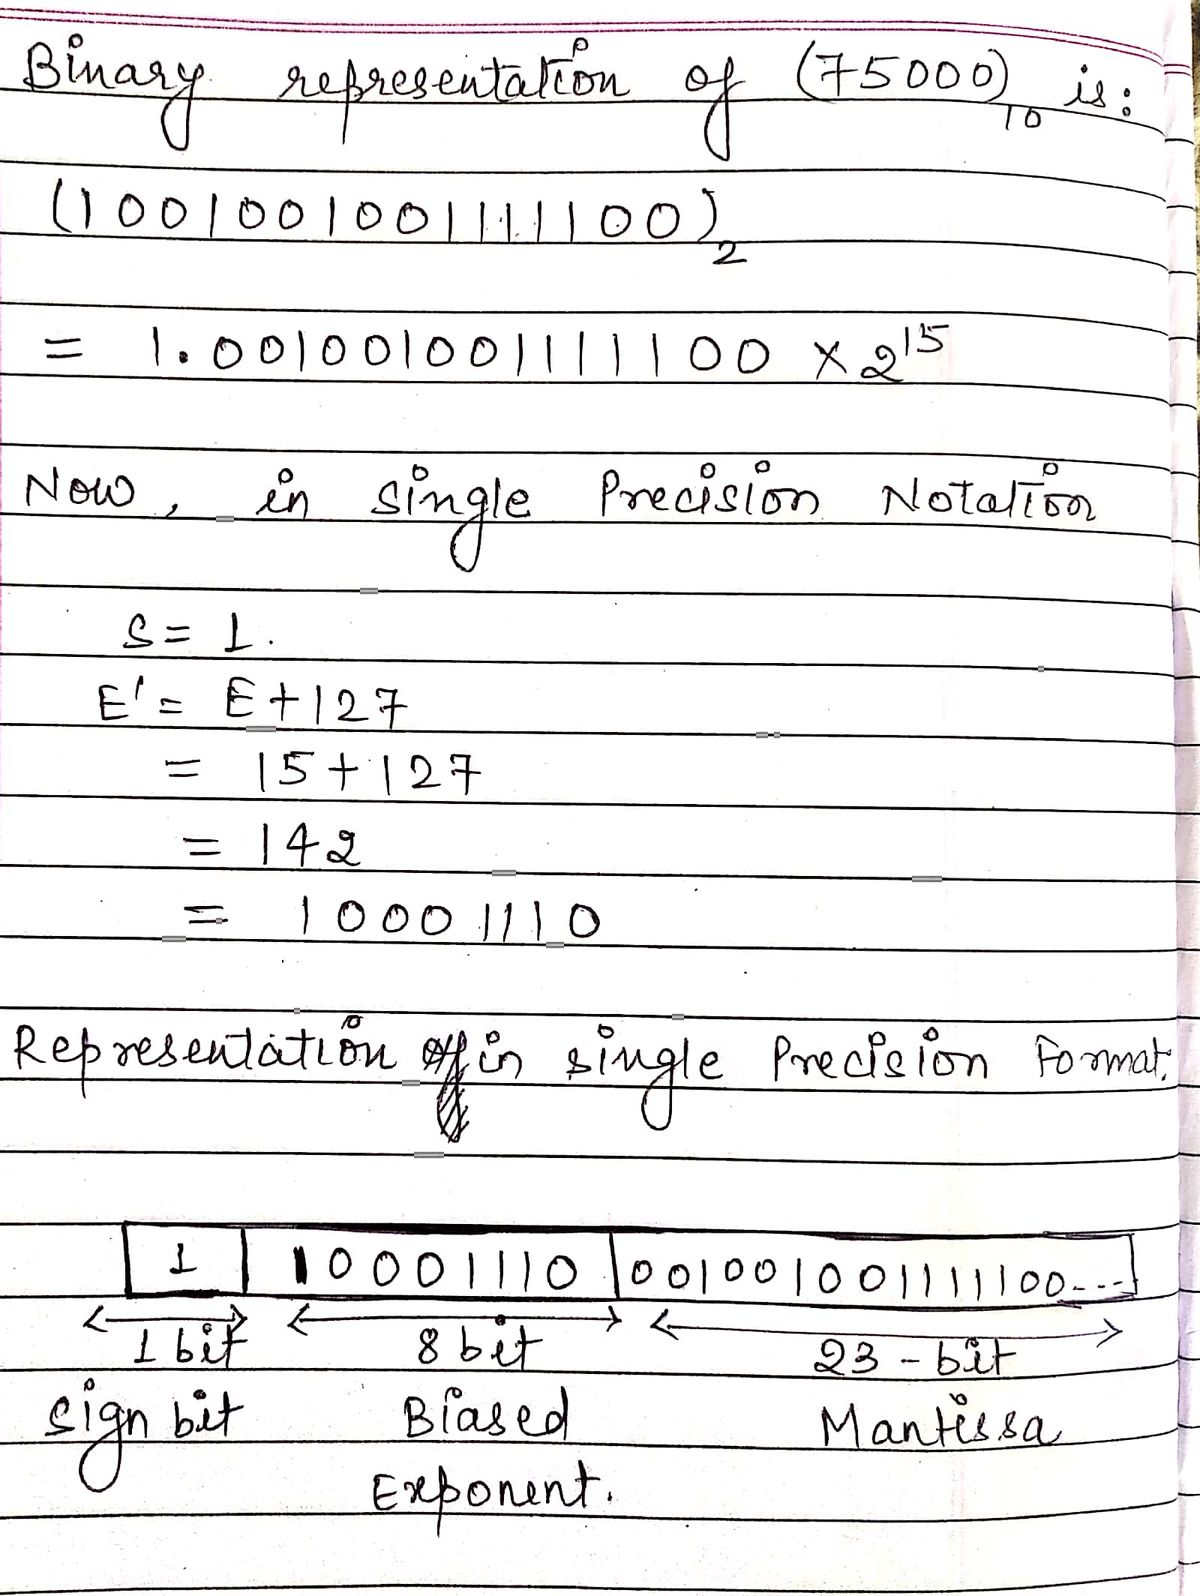 Binary representation of (75000)10 is:
(10010010011111100)2
= 1.0010010011111100 × 2^15
Now, in single Precision Notation
S = 1.
E' = E + 127
= 15 + 127
= 142
= 10001110
Representation in single Precision Format.
1 10001110 0010010011111100...
1 bit 8 bit 23-bit
sign bit Biased Mantissa
Exponent.